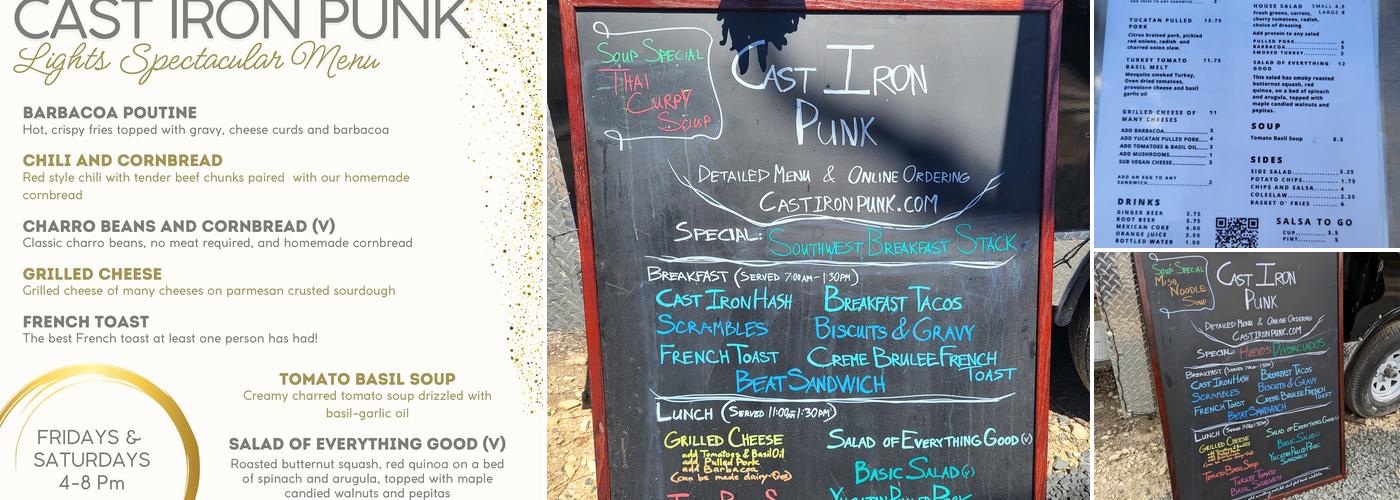 CAST IRON PUNK
Lights Spectacular Menu
BARBACOA POUTINE
Hot, crispy fries topped with gravy, cheese curds and barbacoa
CHILI AND CORNBREAD
Red style chili with tender beef chunks paired with our homemade
cornbread
CHARRO BEANS AND CORNBREAD (V)
Classic charro beans, no meat required, and homemade cornbread
GRILLED CHEESE
Grilled cheese of many cheeses on parmesan crusted sourdough
FRENCH TOAST
The best French toast at least one person has had!
FRIDAYS &
SATURDAYS
4-8 Pm
TOMATO BASIL SOUP
Creamy charred tomato soup drizzled with
basil-garlic oil
SALAD OF EVERYTHING GOOD (V)
Roasted butternut squash, red quinoa on a bed
of spinach and arugula, topped with maple
candied walnuts and pepitas
SOUP SPECIAL
THAI
CURRY
SOUP
CAST IRON
PUNK
DETAILED MENU & ONLINE ORDERING
CASTIRONPUNK.COM
SPECIAL: SOUTHWEST BREAKFAST STACK
BREAKFAST (SERVED 7:00AM-1:30PM)
CAST IRON HASH BREAKFAST TACOS
SCRAMBLES BISCUITS & GRAVY
FRENCH TOAST CREME BRULEE FRENCH
TOAST
BEAT SANDWICH
LUNCH (SERVED 11:00-1:30PM)
GRILLED CHEESE
add Tomatoes & Basil Oil
add Pulled Pork
add Barbacoa
(can be made dairy-free)
SALAD OF EVERYTHING GOOD (V)
BASIC SALAD (V)
YUCATAN PULLED PORK
YUCATAN PULLED 13.75
PORK
Citrus braised pork, pickled
red onions, radish and
charred onion slaw.
TURKEY TOMATO 11.75
BASIL MELT
Mesquite smoked Turkey,
Oven dried tomatoes,
provolone cheese and basil
garlic oil
GRILLED CHEESE OF 11
MANY CHEESES
ADD BARBACOA 5
ADD YUCATAN PULLED PORK 4
ADD TOMATOES & BASIL OIL 3
ADD MUSHROOMS 1
SUB VEGAN CHEESE 3
ADD AN EGG TO ANY
SANDWICH 2
DRINKS
GINGER BEER 3.75
ROOT BEER 3.75
MEXICAN COKE 4.00
ORANGE JUICE 3.50
BOTTLED WATER 1.00
HOUSE SALAD SMALL 4.5
LARGE 8
Fresh greens, carrots,
cherry tomatoes, radish,
choice of dressing
Add protein to any salad
PULLED PORK 4
BARBACOA 5
SMOKED TURKEY 3
SALAD OF EVERYTHING 12
GOOD
This salad has smoky roasted
butternut squash, red
quinoa, on a bed of spinach
and arugula, topped with
maple candied walnuts and
pepitas.
SOUP
Tomato Basil Soup 8.5
SIDES
SIDE SALAD 3.25
POTATO CHIPS 1.75
CHIPS AND SALSA 4
COLESLAW 2.25
BASKET O' FRIES 6
SALSA TO GO
CUP 3.5
PINT 5
SOUP SPECIAL
MISO
NOODLE
SOUP
CAST IRON
PUNK
DETAILED MENU & ONLINE ORDERING
CASTIRONPUNK.COM
SPECIAL: HUEVOS DIVORCIADOS
BREAKFAST (SERVED 7:00-1:30PM)
CAST IRON HASH BREAKFAST TACOS
SCRAMBLES BISCUITS & GRAVY
FRENCH TOAST CREME BRULEE FRENCH
TOAST
BEAT SANDWICH
LUNCH (SERVED 11:00-1:30PM)
GRILLED CHEESE
SALAD OF EVERYTHING GOOD
BASIC SALAD
YUCATAN PULLED PORK
SANDWICH
TOMATO BASIL SOUP
TURKEY TOMATO
BASIL SANDWICH